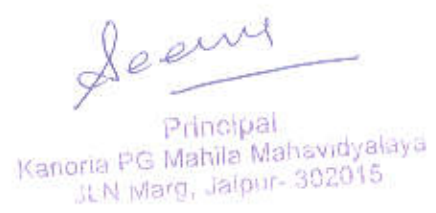 Seema
Principal
Kanoria PG Mahila Mahavidyalaya
JLN Marg, Jaipur- 302015